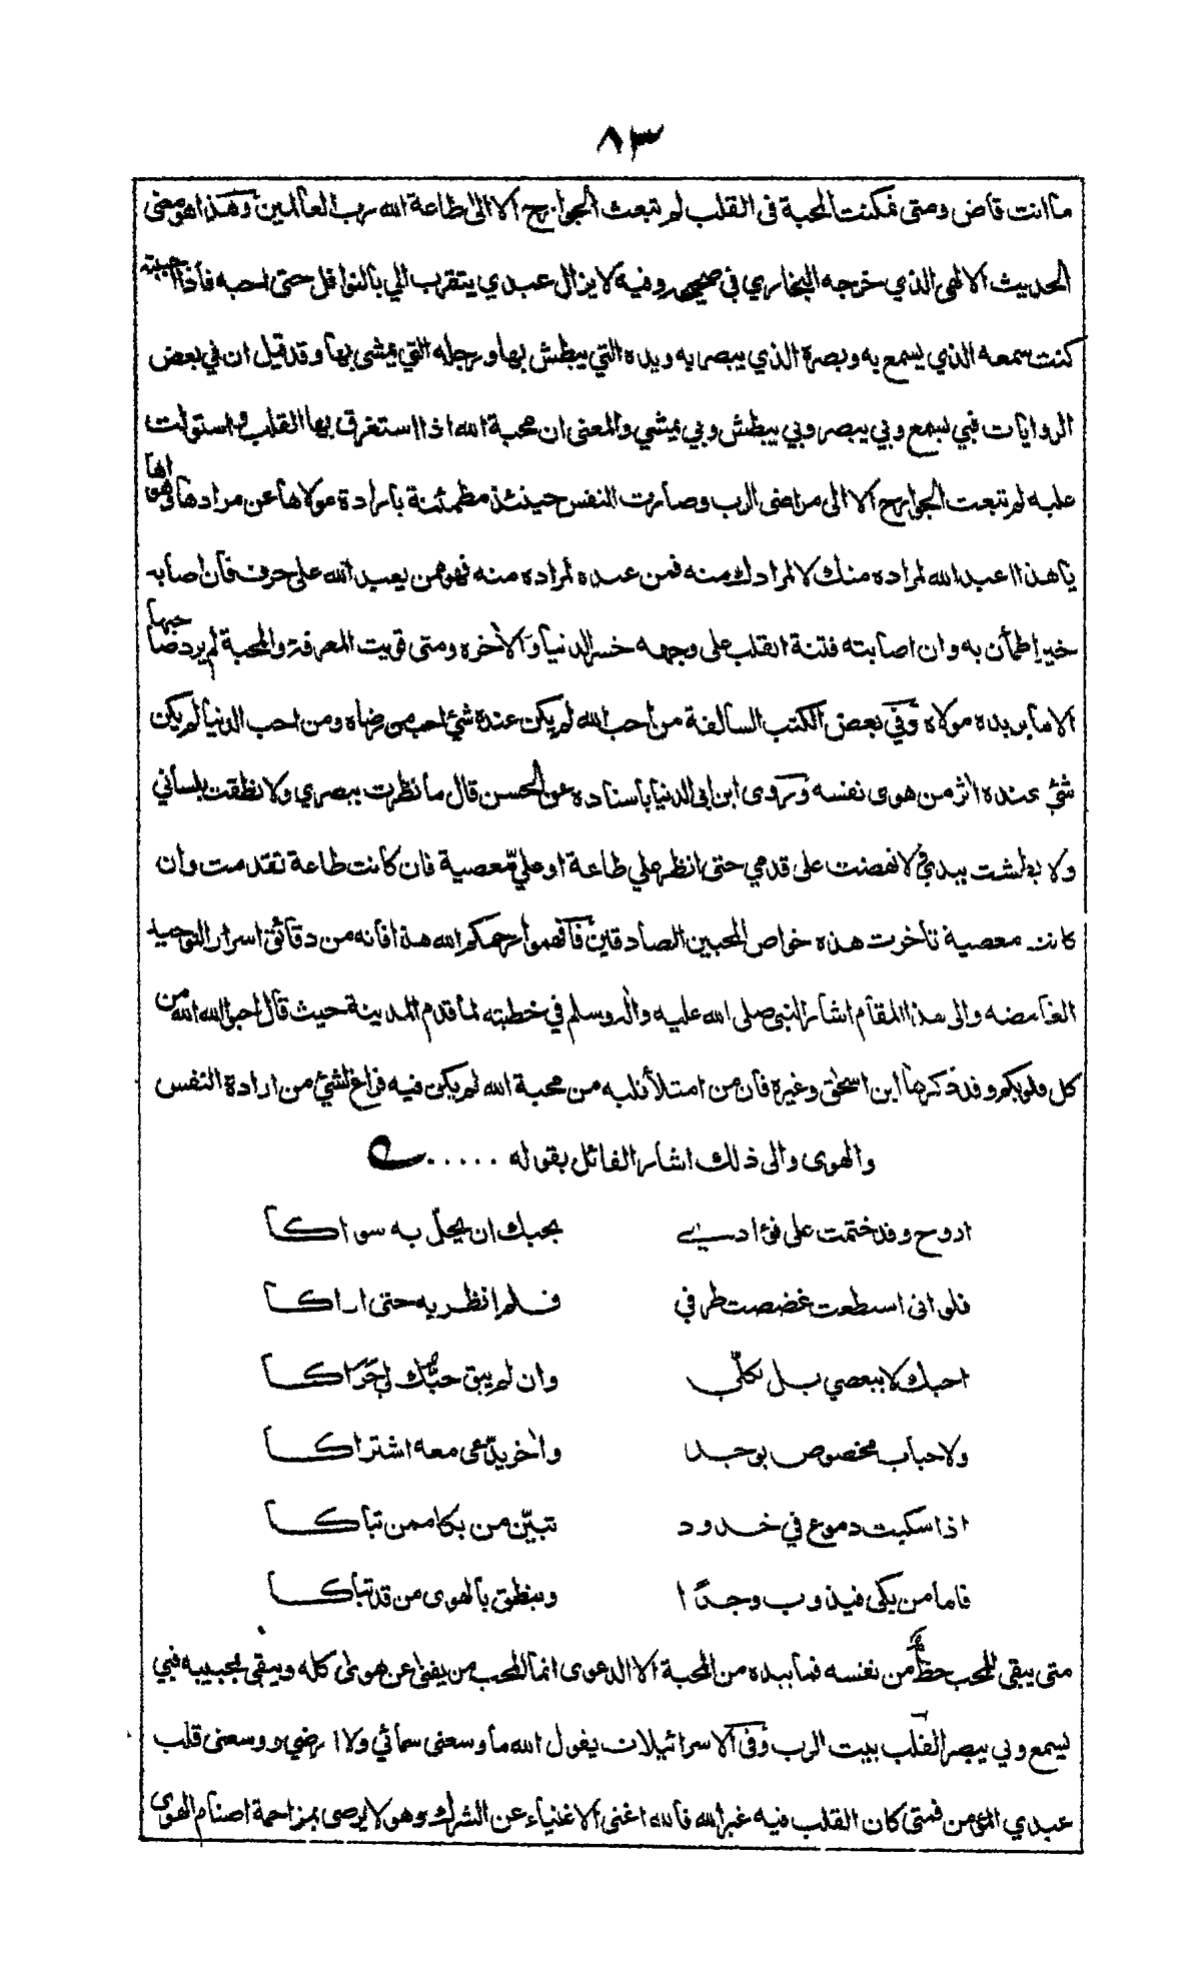 ٨٣
ما انت قاض ومتى تمكنت المحبة في القلب لم تبعث الجوارح الا الى طاعة الله رب العالمين وهذا هو معنى
الحديث الالهي الذي خرجه البخاري في صحيحه وفيه لا يزال عبدي يتقرب الي بالنوافل حتى احبه فاذا احببته
كنت سمعه الذي يسمع به وبصره الذي يبصر به ويده التي يبطش بها ورجله التي يمشي بها وقد قيل ان في بعض
الروايات فبي يسمع وبي يبصر وبي يبطش وبي يمشي والمعنى ان محبة الله اذا استغرق بها القلب واستولت
عليه لم تبعت الجوارح الا الى مراضى الرب وصارت النفس حينئذ مطمئنة بارادة مولاها عن مرادها وهواها
يا هذا اعبد الله لمراده منك لا لمرادك منه فمن عبده لمراده منه فهو ممن يعبد الله على حرف فان اصابه
خير اطمأن به وان اصابته فتنة انقلب على وجهه خسر الدنيا والآخره ومتى قويت المعرفة والمحبة لم يرد صاحبها
الا ما يريده مولاه وفي بعض الكتب السالفة من احب الله لم يكن عنده شئ احب من رضاه ومن احب الدنيا لم يكن
شئ عنده اثر من هوى نفسه وروى ابن ابي الدنيا باسناده عن الحسن قال ما نظرت ببصري ولا نطقت بلساني
ولا بطشت بيدي ولا نهضت على قدمي حتى انظر على طاعة او على معصية فان كانت طاعة تقدمت وان
كانت معصية تأخرت هذه خواص المحبين الصادقين فافهموا رحمكم الله هذا فانه من دقائق اسرار التوحيد
الغامضه والى هذا المقام اشار النبي صلى الله عليه واله وسلم في خطبته لما قدم المدينة حيث قال احبوا الله من
كل قلوبكم وقد ذكرها ابن اسحق وغيره فان من امتلأ قلبه من محبة الله لم يكن فيه فراغ لشئ من ارادة النفس
والهوى والى ذلك اشار القائل بقوله .....
اروح وقد ختمت على فؤادي بحبك ان يحلّ به سواكا
فلو انى اسطعت غضضت طرفي فلم انظر به حتى اراكا
احبك لا ببعضي بل بكلّي وان لم يبق حبُّك لي حَرَاكا
ولاحباب مخصوص بوجد واخر يدّعى معه اشتراكا
اذا سكبت دموع في خدود تبيّن من بكا ممن تباكا
فاما من بكى فيذوب وجدًا وينطق بالهوى من قد تباكا
متى يبقى للمحب حظٌّ من نفسه فما بيده من المحبة الا الدعوى انما المحب من يفنى عن هوى كله ويبقى لحبيبه فبي
يسمع وبي يبصر القلب بيت الرب وفي الاسرائيلات يقول الله ما وسعنى سمائي ولا ارضي ووسعنى قلب
عبدي المؤمن فمتى كان القلب فيه غير الله فالله اغنى الاغنياء عن الشرك وهو لا يرضى بمزاحمة اصنام الهوى